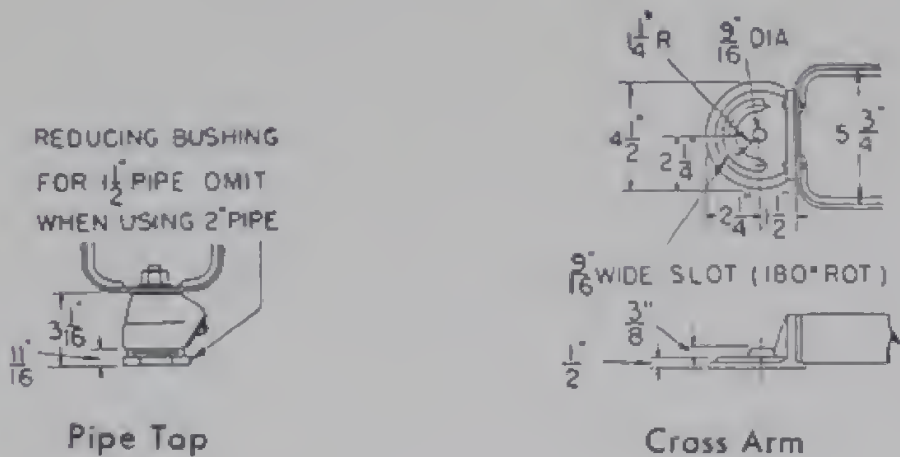 REDUCING BUSHING
FOR 1 1/2" PIPE OMIT
WHEN USING 2" PIPE
3 1/16"
11/16"
Pipe Top
1 1/4" R
9/16" DIA
4 1/2"
2 1/4"
5 3/4"
2 1/4"
1 1/2"
9/16" WIDE SLOT (180° ROT)
3/8"
1/2"
Cross Arm